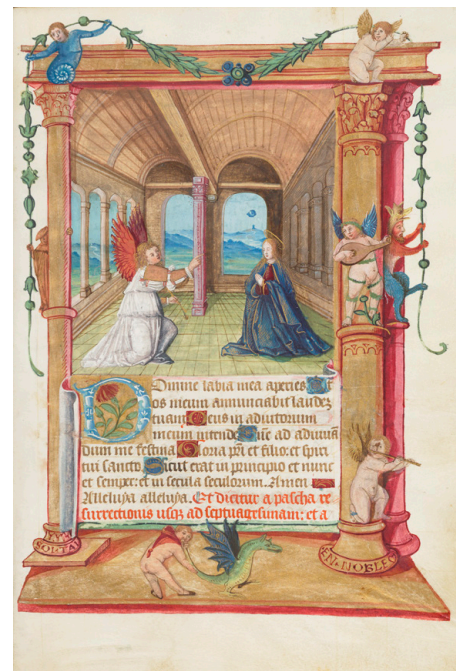 Domine labia mea aperies Et
os meum annunciabit laudez
tuam Deus in adiutorium
meum intende Dne ad adiuuā
dum me festina Gloria pr̄i et filio: et spiri
tui sancto Sicut erat in principio et nunc
et semper: et in secula seculorum. Amen
Alleluya alleluya. Et dicitur a pascha re
surrectionis usqz ad septuagesimam: et a
EN·NOBLEC